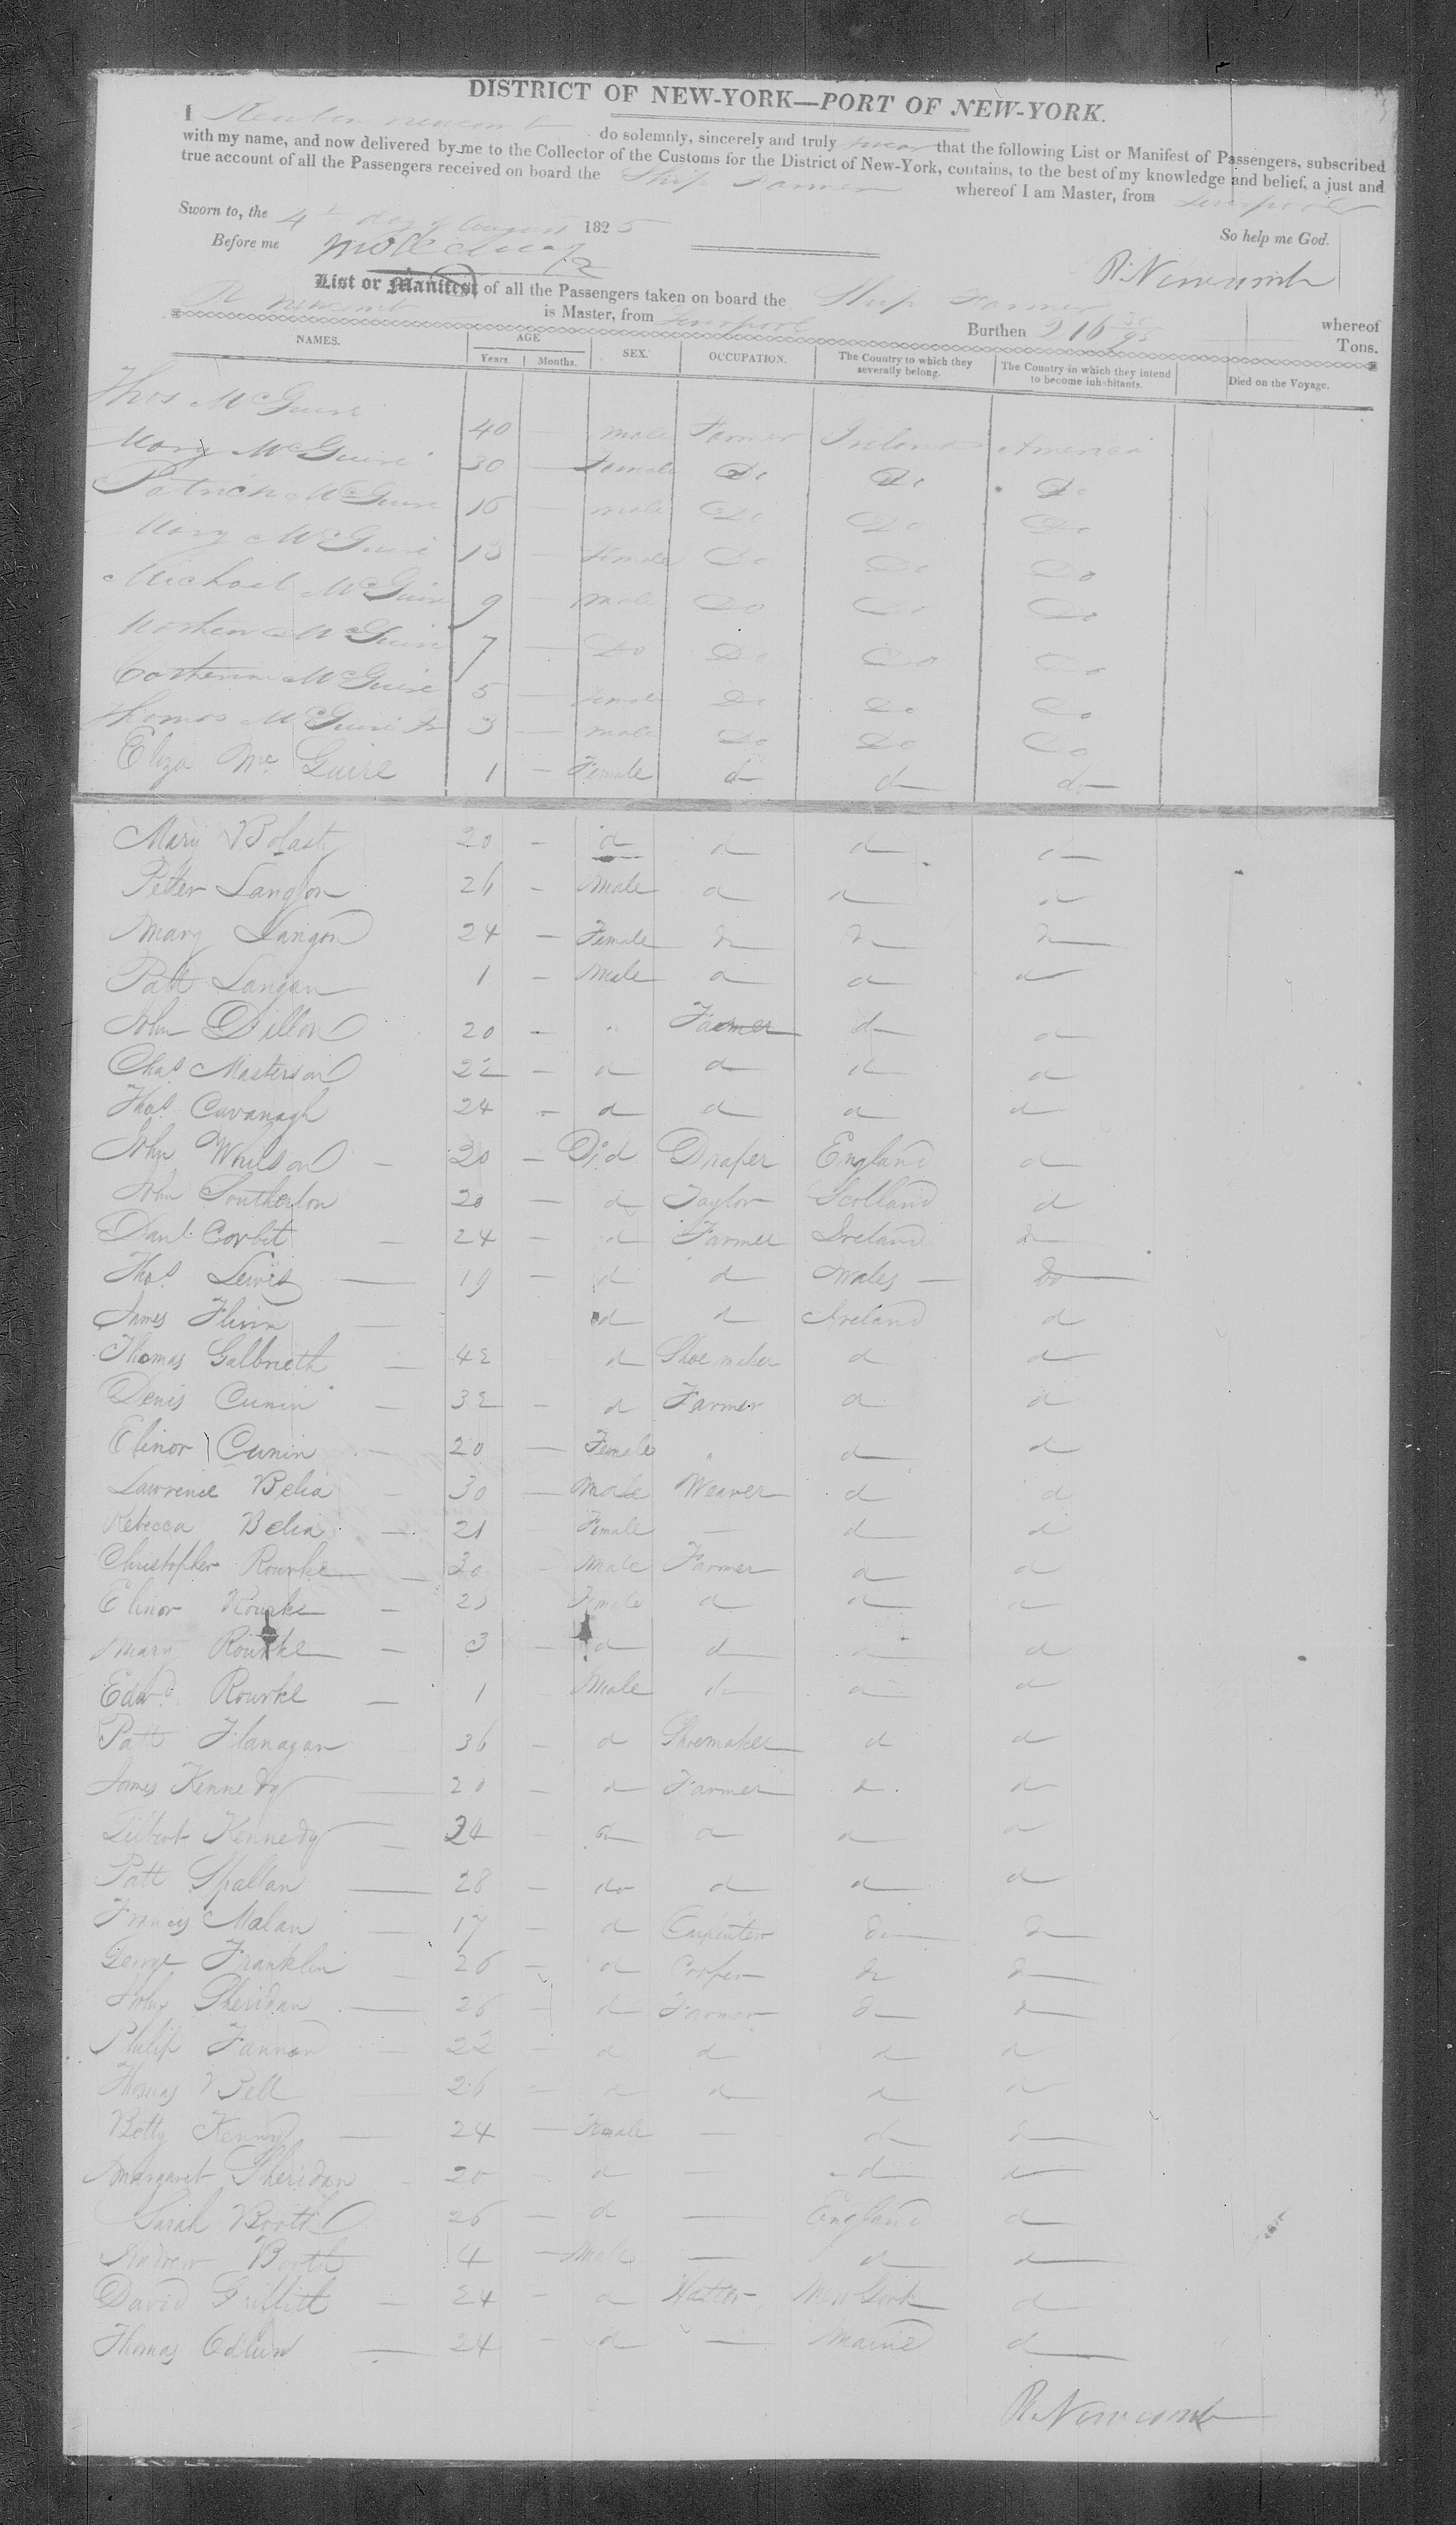 DISTRICT OF NEW-YORK—PORT OF NEW-YORK.
I Reuben Newcomb do solemnly, sincerely and truly swear that the following List or Manifest of Passengers, subscribed
with my name, and now delivered by me to the Collector of the Customs for the District of New-York, contains, to the best of my knowledge and belief, a just and
true account of all the Passengers received on board the Ship Farmer whereof I am Master, from Liverpool
Sworn to, the 4th day of August 1825 So help me God.
Before me R. Newcomb
List or Manifest of all the Passengers taken on board the Ship Farmer whereof
R Newcomb is Master, from Liverpool Burthen 216 30/95 Tons.
NAMES. AGE Years. Months. SEX. OCCUPATION. The Country to which they severally belong. The Country in which they intend to become inhabitants. Died on the Voyage.
Thos McGuire 40 — male Farmer Ireland America
Mary McGuire 30 — Female Do Do Do
Patrick McGuire 16 — male Do Do Do
Mary McGuire 13 — Female Do Do Do
Michael McGuire 9 — male Do Do Do
McGuire 7 — Do Do Do Do
Catherine McGuire 5 — Female Do Do Do
Thomas McGuire Jr 3 — male Do Do Do
Eliza McGuire 1 — Female do do do
Mary 20 — d d d d
Peter Langon 26 — Male d d d
Mary Langon 24 — Female do do do
Patt Langan 1 — Male d d d
John Dillon 20 — " Farmer d d
Chas Masterson 22 — d d d d
Thos Cavanagh 24 — d d d d
John — 20 — Do Draper England d
John Southerlon 20 — d Taylor Scotland d
Danl Corbit — 24 — d Farmer Ireland do
Thos Lewis — 19 — d d Wales — Do
James Flinn — d d Ireland d
Thomas Galbrieth — 42 d Shoemaker d d
Denis Cunin — 32 — d Farmer d d
Elinor Cunin — 20 — Female " d d
Lawrence Belia — 30 — Male Weaver d d
Rebecca Belia — 21 Female — d d
Christopher Rourke — 30 — Male Farmer d d
Elinor Rourke — Female d d d
Mary Rourke — 3 — d d d d
Edwd Rourke — 1 Male do d d
Patt Flanagan 36 — d Shoemaker d d
James Kennedy — 20 — d Farmer d d
Kennedy — 24 — d d d d
Patt Spallan — 28 — do d d d
Francis Malan — 17 — d Carpenter do do
George Franklin — 26 — d Cooper do do
John Sheridan — 26 — d Farmer do do
Philip Fannon — 22 — d d d d
Thomas Bell — 26 — d d d d
Betty Kenny — 24 — Female — d do
Margaret Sheridan 20 — d — d d
Sarah Booth 26 — d — England d
Andrew Booth 4 — Male — d d
David Griffith — 24 — d Hatter New York d
Thomas — 24 — d — Maine d
R. Newcomb